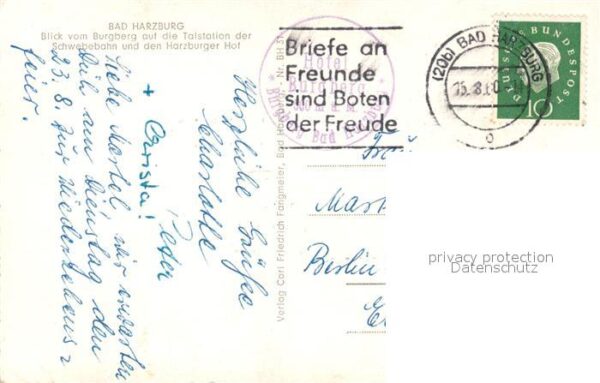 BAD HARZBURG
Blick vom Burgberg auf die Talstation der
Schwebebahn und den Harzburger Hof
Liebe Martel, wir erwarten
Dich am Dienstag den
23.8. zur Wiedersehens=
feier.
Herzliche Grüße
Charlotte
Peter
+ Christa!
Verlag Carl Friedrich Fangmeier, Bad Harzburg Nr. BH
Hotel
Burgberg
Bad Harzburg
Briefe an
Freunde
sind Boten
der Freude
(20b) BAD HARZBURG
15.8.60
c
DEUTSCHE BUNDESPOST
10
Berlin
privacy protection
Datenschutz